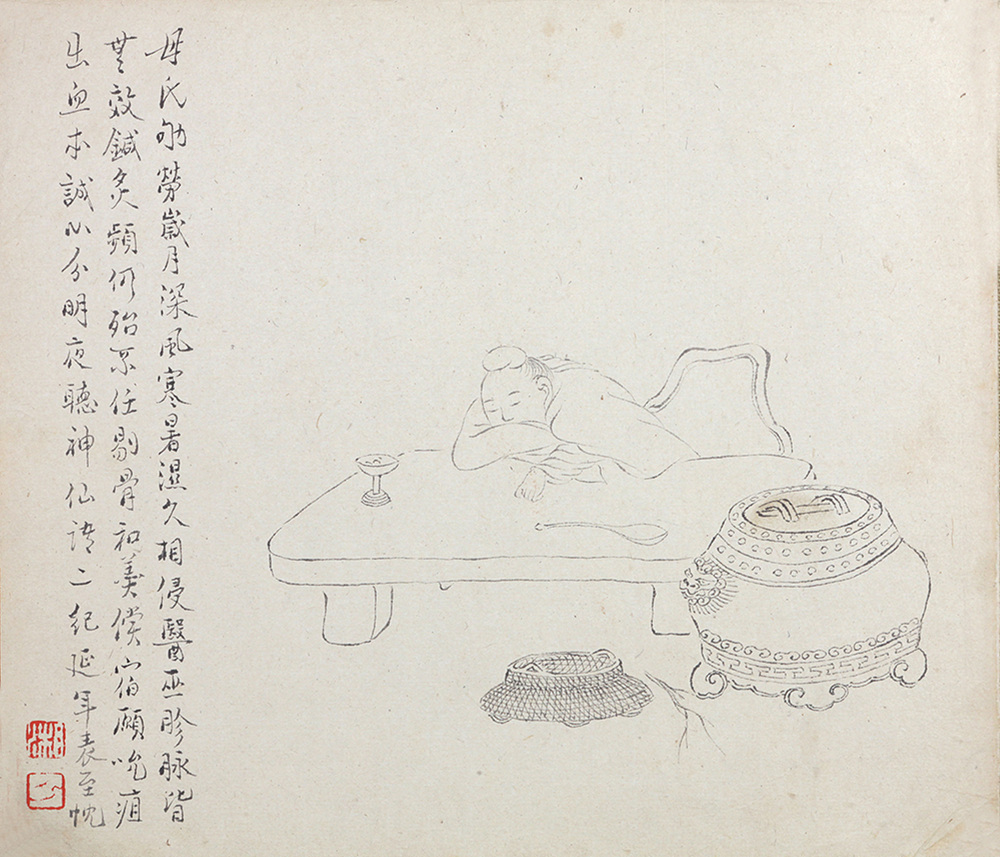 母氏劬勞歲月深風寒暑濕久相侵醫巫胗脉皆
無效鍼灸頻仍殆不任剔骨和羹償宿願吮疽
出血本誠心分明夜聽神仙語二紀延年表至忱